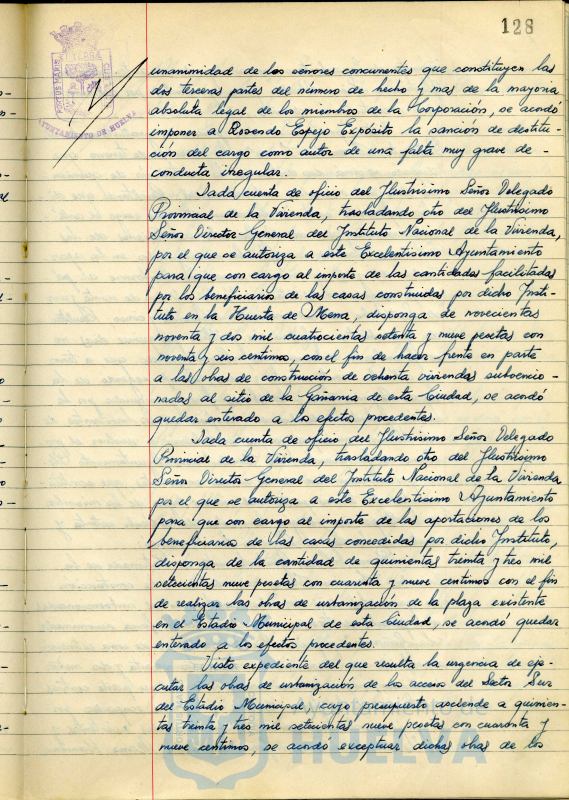 128
PORTUS MARIS
AYUNTAMIENTO DE HUELVA
unanimidad de los señores concurrentes que constituyen las
dos terceras partes del número de hecho y mas de la mayoria
absoluta legal de los miembros de la Corporación, se acordó
imponer a Rosendo Espejo Expósito la sanción de destitu-
ción del cargo como autor de una falta muy grave de-
conducta irregular.
Dada cuenta de oficio del Ilustrisimo Señor Delegado
Provincial de la Vivienda, trasladando otro del Ilustrisimo
Señor Director General del Instituto Nacional de la Vivienda,
por el que se autoriza a este Excelentisimo Ayuntamiento
para que con cargo al importe de las cantidades facilitadas
por los beneficiarios de las casas construidas por dicho Insti-
tuto en la Huerta de Mena, disponga de novecientas
noventa y dos mil cuatrocientas setenta y nueve pesetas con
noventa y seis centimos, con el fin de hacer frente en parte
a las obras de construcción de ochenta viviendas subvencio-
nadas al sitio de la Gañania de esta Ciudad, se acordó
quedar enterado a los efectos procedentes.
Dada cuenta de oficio del Ilustrisimo Señor Delegado
Provincial de la Vivienda, trasladando otro del Ilustrisimo
Señor Director General del Instituto Nacional de la Vivienda
por el que se autoriza a este Excelentisimo Ayuntamiento
para que con cargo al importe de las aportaciones de los
beneficiarios de las casas concedidas por dicho Instituto,
disponga de la cantidad de quinientas treinta y tres mil
setecientas nueve pesetas con cuarenta y nueve centimos con el fin
de realizar las obras de urbanización de la plaza existente
en el Estadio Municipal de esta Ciudad, se acordó quedar
enterado a los efectos procedentes.
Visto expediente del que resulta la urgencia de eje-
cutar las obras de urbanización de los accesos del Sector Sur
del Estadio Municipal, cuyo presupuesto asciende a quinien-
tas treinta y tres mil setecientas nueve pesetas con cuarenta y
nueve centimos, se acordó exceptuar dichas obras de los
HUELVA